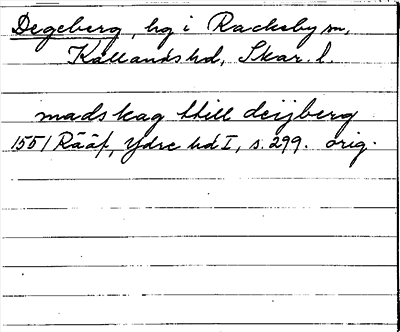 Degeberg, hg i Rackeby sn,
Kållands hd, Skar. l.
madskag thill deijberg
1551 Rääf, Ydre hd I, s. 299. orig.